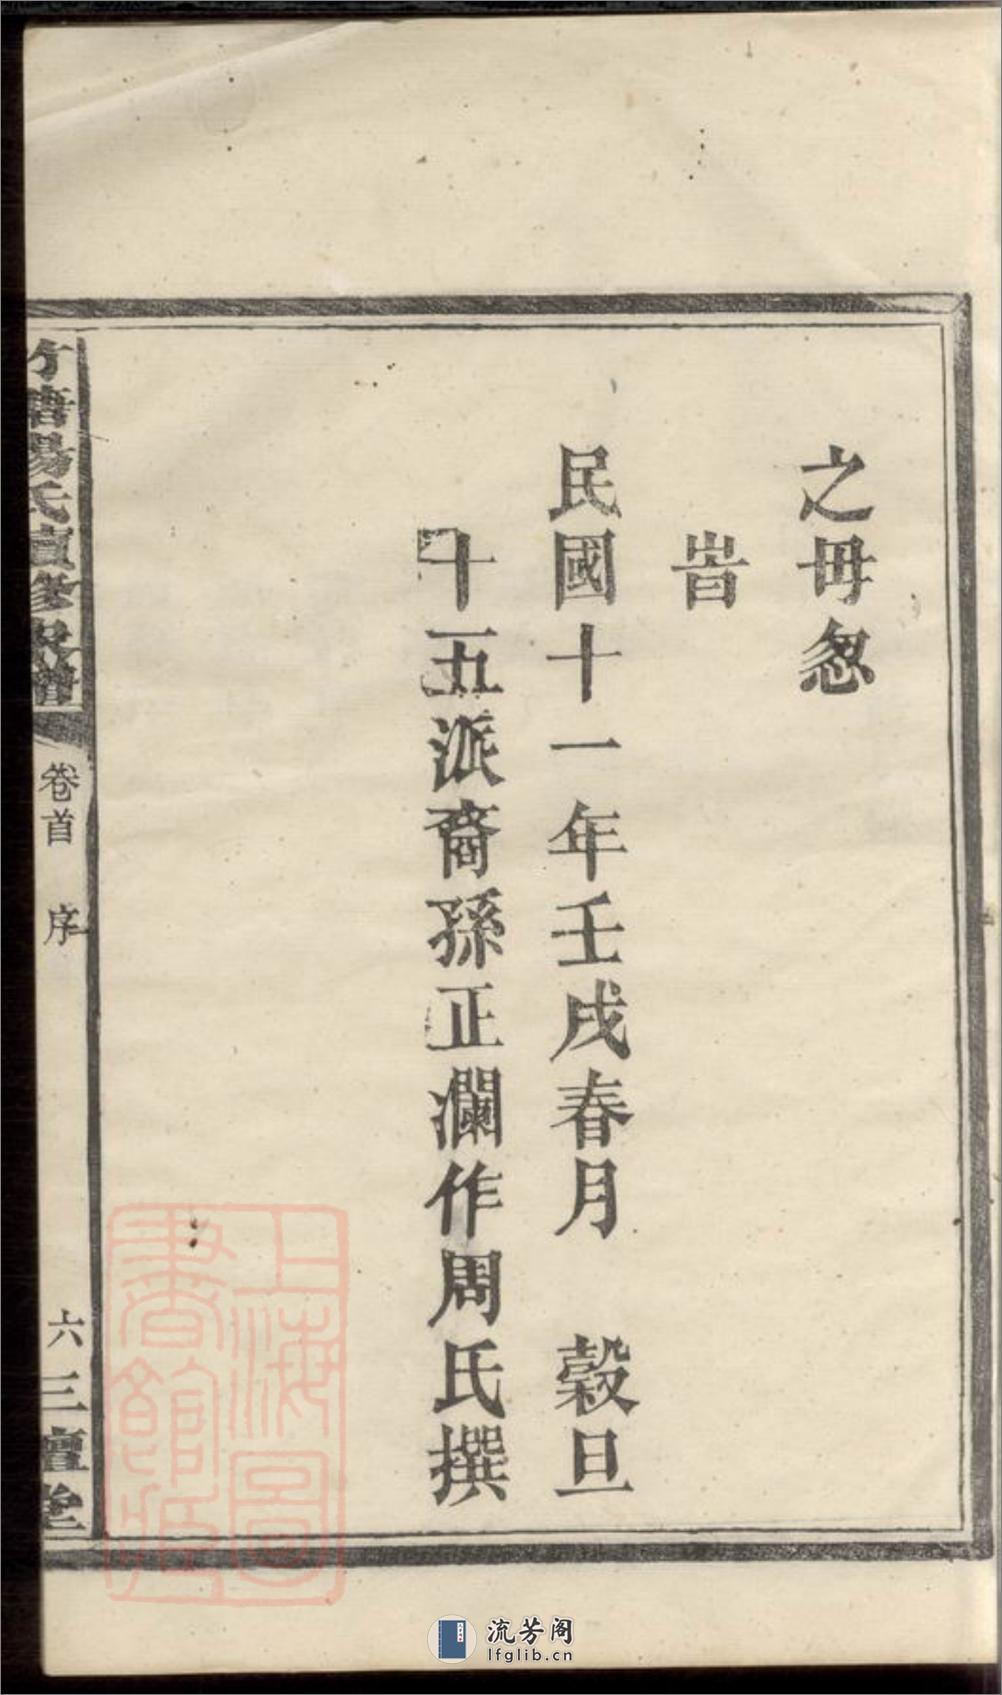 之毋忽
旹
民國十一年壬戌春月 穀旦
十五派裔孫正瀾作周氏撰
楊氏續修支譜
卷首 序
六 三鱣堂
上海圖書館藏
流芳阁
lfglib.cn